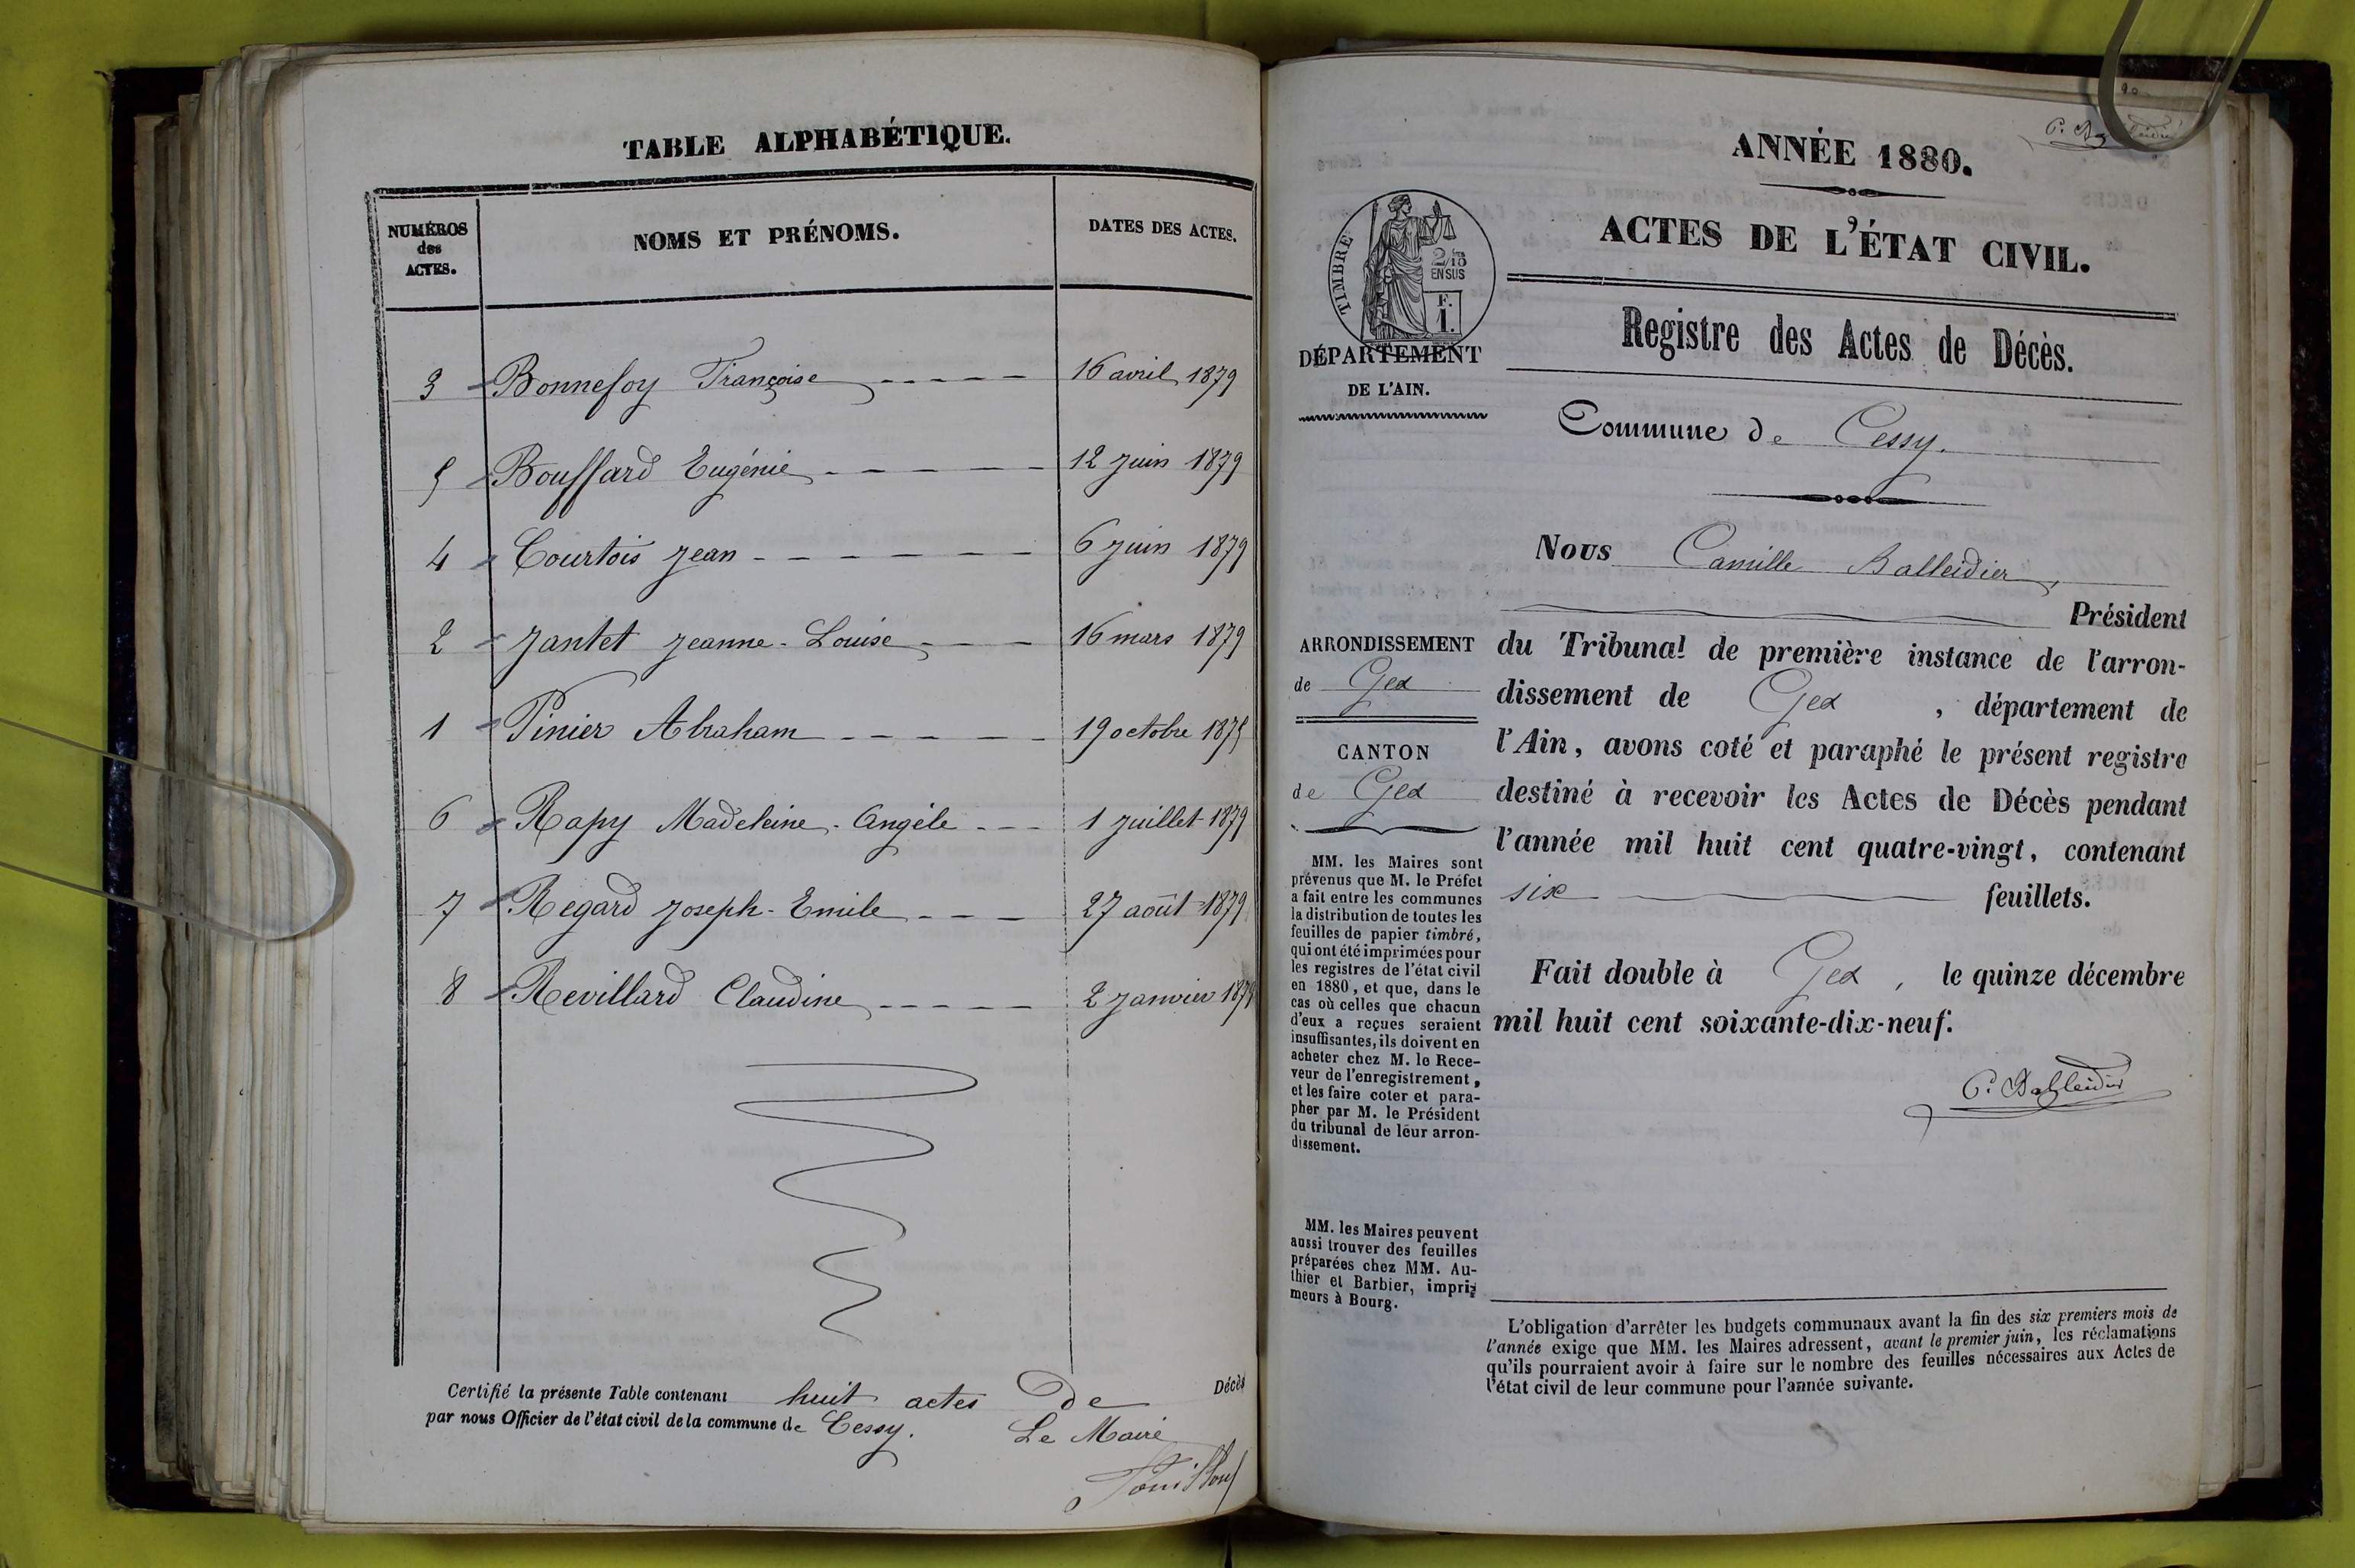 TABLE ALPHABÉTIQUE.
NUMÉROS des ACTES.
NOMS ET PRÉNOMS.
DATES DES ACTES.
3 Bonnefoy Françoise 16 avril 1879
5 Bouffard Eugénie 12 juin 1879
4 Courtois Jean 6 juin 1879
2 Jantet Jeanne-Louise 16 mars 1879
1 Pinier Abraham 19 octobre 1879
6 Rapy Madeleine-Angèle 1 juillet 1879
7 Regard Joseph-Emile 27 août 1879
8 Revillard Claudine 2 janvier 1879
Certifié la présente Table contenant huit actes de Décès
par nous Officier de l'état civil de la commune de Cessy.
Le Maire
ANNÉE 1880.
ACTES DE L'ÉTAT CIVIL.
TIMBRE
2/10
EN SUS
F.
1.
DÉPARTEMENT
DE L'AIN.
Registre des Actes de Décès.
Commune de Cessy.
Nous Camille Balleidier,
Président
du Tribunal de première instance de l'arron-
dissement de Gex, département de
l'Ain, avons coté et paraphé le présent registre
destiné à recevoir les Actes de Décès pendant
l'année mil huit cent quatre-vingt, contenant
six feuillets.
Fait double à Gex, le quinze décembre
mil huit cent soixante-dix-neuf.
C. Balleidier
ARRONDISSEMENT
de Gex
CANTON
de Gex
MM. les Maires sont
prévenus que M. le Préfet
a fait entre les communes
la distribution de toutes les
feuilles de papier timbré,
qui ont été imprimées pour
les registres de l'état civil
en 1880, et que, dans le
cas où celles que chacun
d'eux a reçues seraient
insuffisantes, ils doivent en
acheter chez M. le Rece-
veur de l'enregistrement,
et les faire coter et para-
pher par M. le Président
du tribunal de leur arron-
dissement.
MM. les Maires peuvent
aussi trouver des feuilles
préparées chez MM. Au-
thier et Barbier, impri-
meurs à Bourg.
L'obligation d'arrêter les budgets communaux avant la fin des six premiers mois de
l'année exige que MM. les Maires adressent, avant le premier juin, les réclamations
qu'ils pourraient avoir à faire sur le nombre des feuilles nécessaires aux Actes de
l'état civil de leur commune pour l'année suivante.